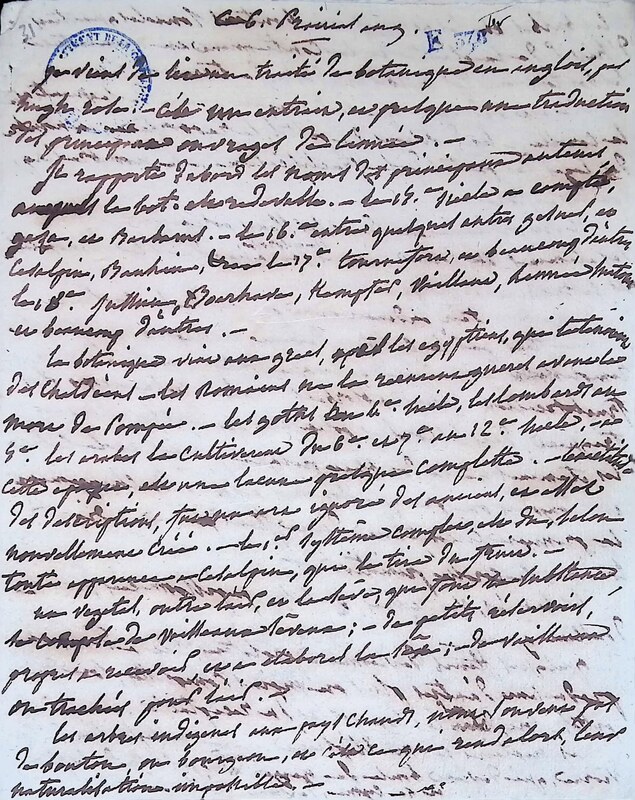 ce 6. Prairial an 9.
E 374
je viens de lire un traité de botanique en anglois, par
hugh rose. – c'est un extrait, et presque une traduction
des principaux ouvrages de linnée. –
Il rapporte d'abord les noms des principaux auteurs
auxquels la bot. est redevable. – le 15.e siècle a compté,
gaza, et Barbarus. – le 16.e entre quelques autres gesner, et
Cesalpin, Bauhin, le 17.e tournefort, et beaucoup d'autres
le 18.e Jussieu, Boerhave, Vaillant, Linnée
et beaucoup d'autres. –
la botanique vint aux grecs, après les egyptiens, qui la tenoient
des Chaldéens – les Romains ne la reçurent gueres avant la
mort de Pompée. – les goths au 4.e siècle, les lombards au
5.e les arabes la cultiverent du 6.e et 7.e au 12.e siècle. –
cette époque, est une lacune presque complette. –
des descriptions, fut un art ignoré des anciens, et
nouvellement créé. – le 1.er systême complet, est du, selon
toute apparence a Cesalpin, qui le tira du fruit. –
un vegetal, outre l'air, et la sève, qui font sa substance,
se compose de vaisseaux séveux; – de petits réservoirs,
propres a recevoir et a élaborer la sève; – de vaisseaux
ou trachées pour l'air. –
les arbres indigenes aux pays chauds, n'ont souvent pas
de bouton, ou bourgeon, et c'est ce qui rend alors, leur
naturalisation impossible. –